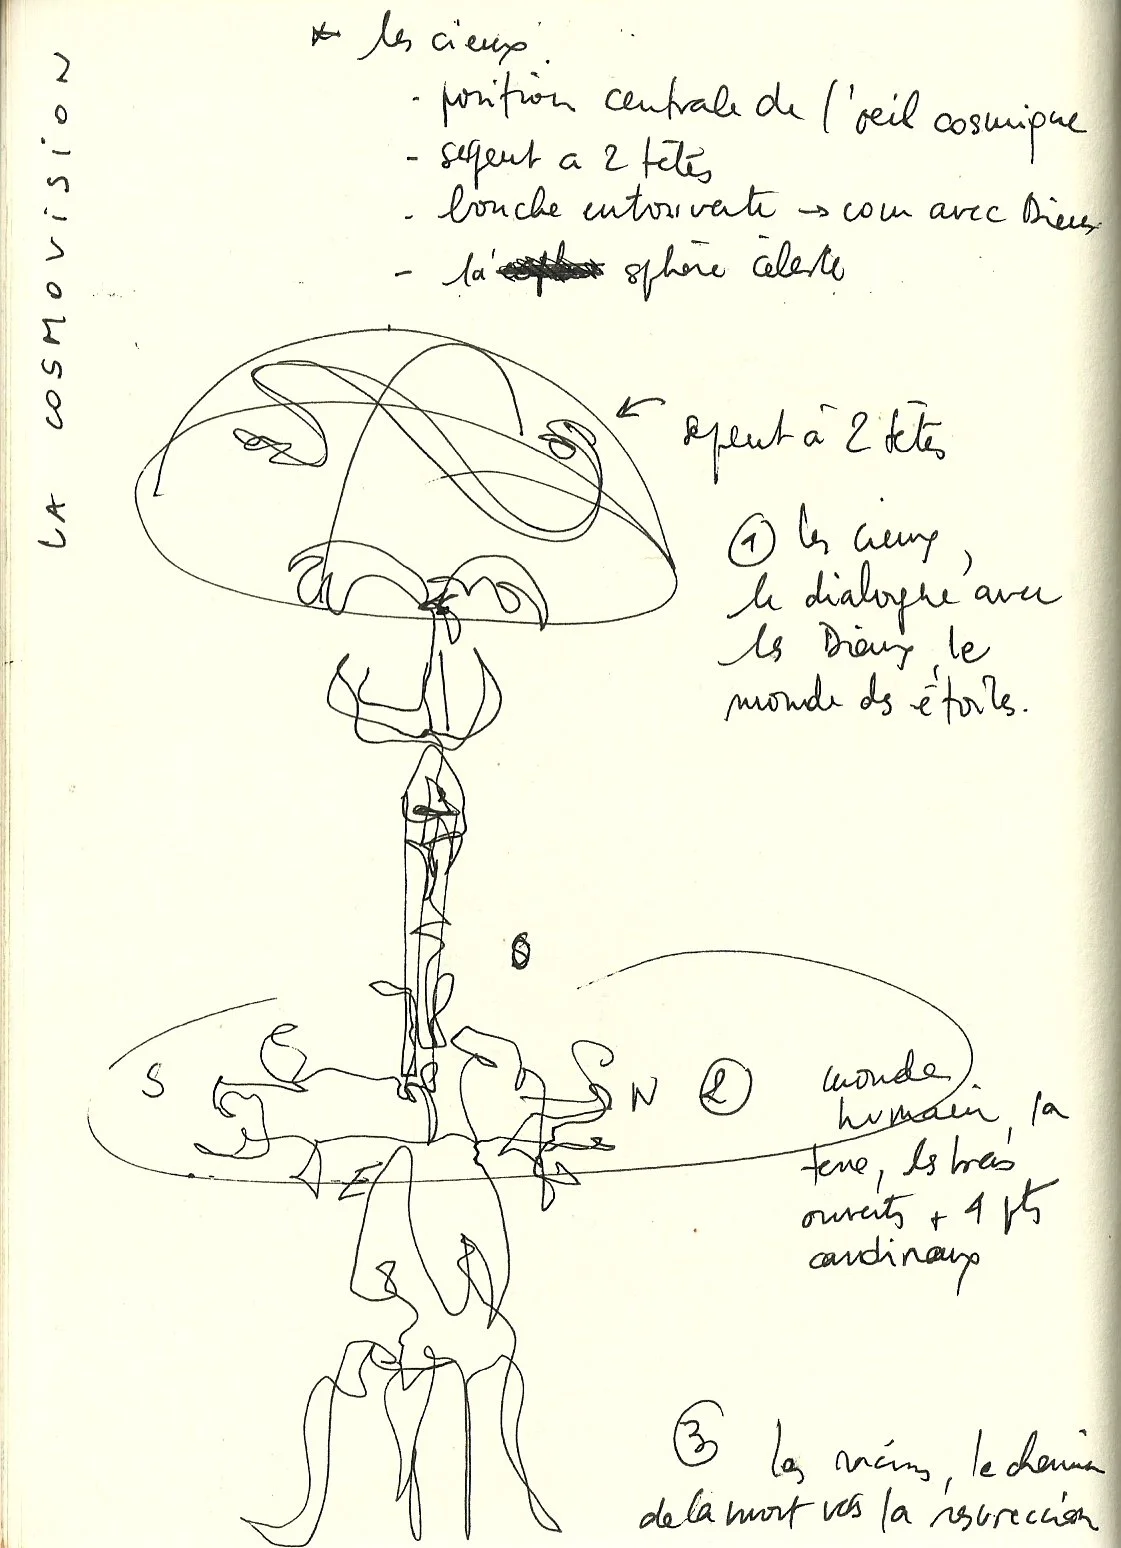 LA COSMOVISION
* les cieux.
- position centrale de l'oeil cosmique
- serpent a 2 têtes
- bouche entrouverte → com avec Dieux
- la sphère céleste
serpent à 2 têtes
① les cieux,
le dialogue avec
les Dieux, le
monde des étoiles.
S
N
② monde
humain, la
terre, les bras
ouverts + 4 pts
cardinaux
E
③ les racines, le chemin
de la mort vers la résureccion